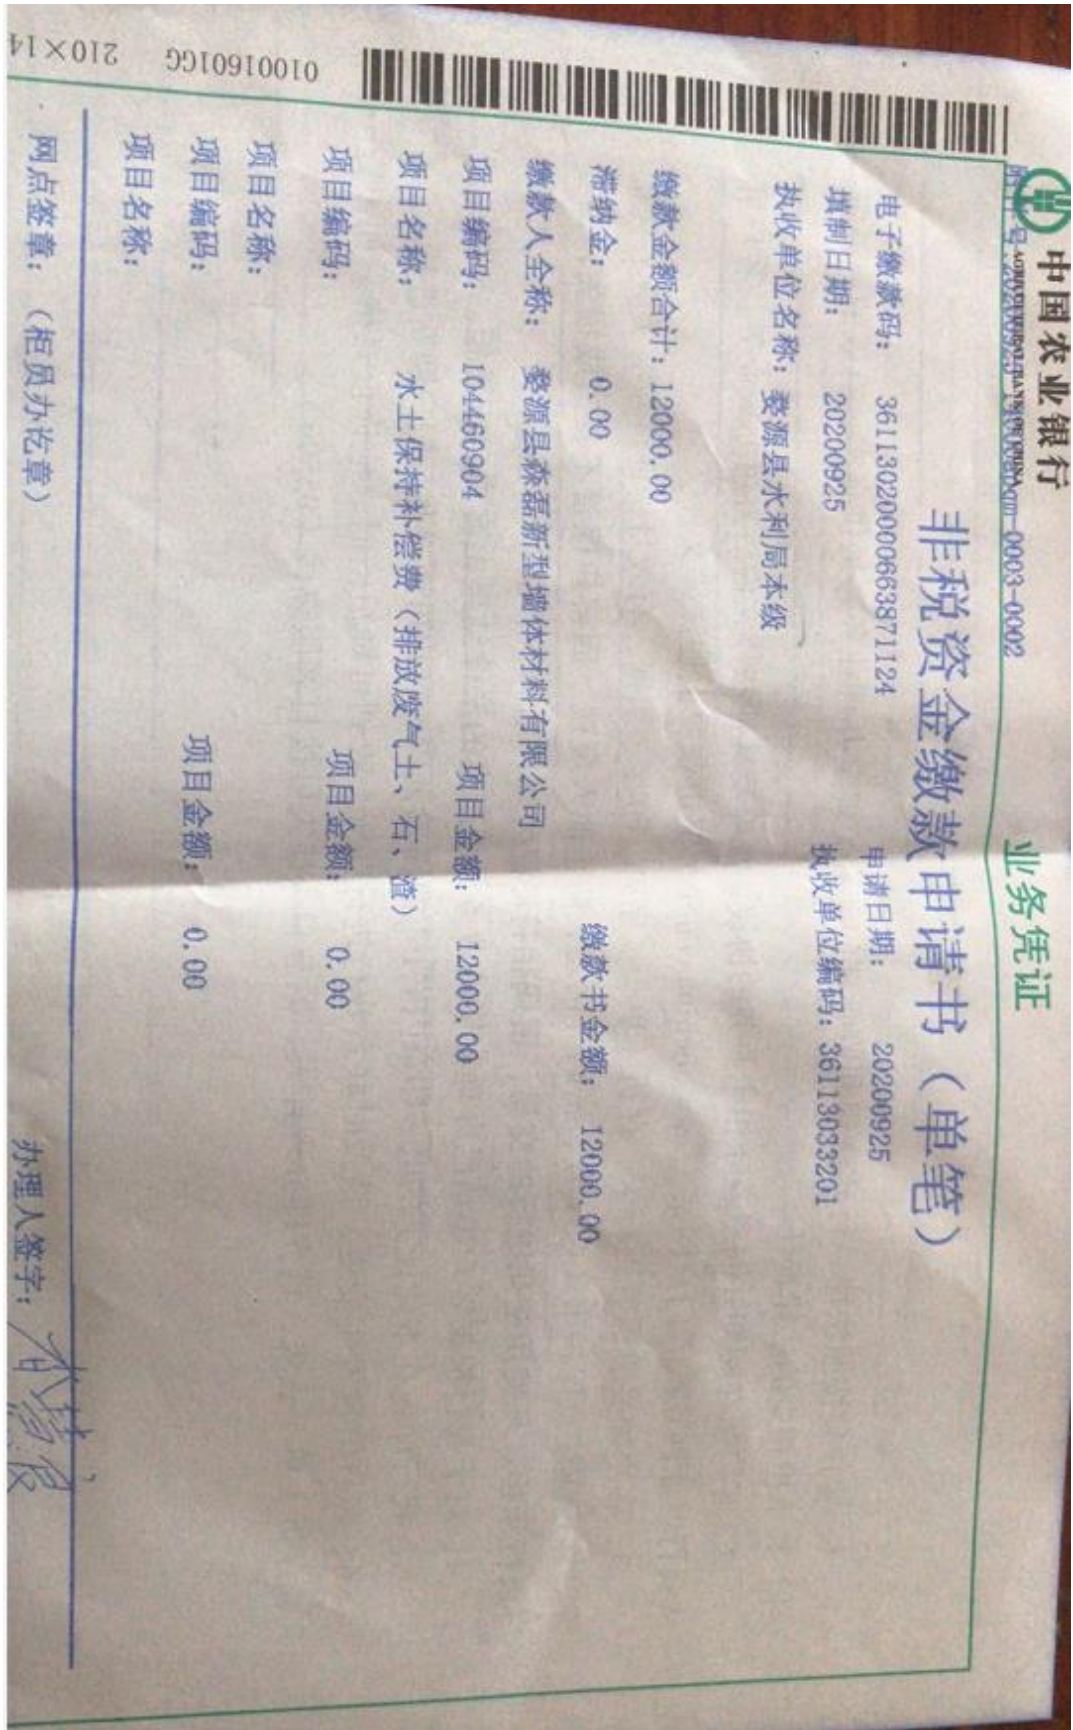 中国农业银行
业务凭证
非税资金缴款申请书（单笔）
电子缴款码： 36113020000663871124 申请日期： 20200925
填制日期： 20200925 执收单位编码：36113033201
执收单位名称：婺源县水利局本级
缴款金额合计：12000.00
滞纳金： 0.00 缴款书金额： 12000.00
缴款人全称： 婺源县森磊新型墙体材料有限公司
项目编码： 104460904 项目金额： 12000.00
项目名称： 水土保持补偿费（排放废气土、石、渣）
项目编码： 项目金额： 0.00
项目名称：
项目编码： 项目金额： 0.00
项目名称：
网点签章：（柜员办讫章） 办理人签字：
01001601GG 210×14